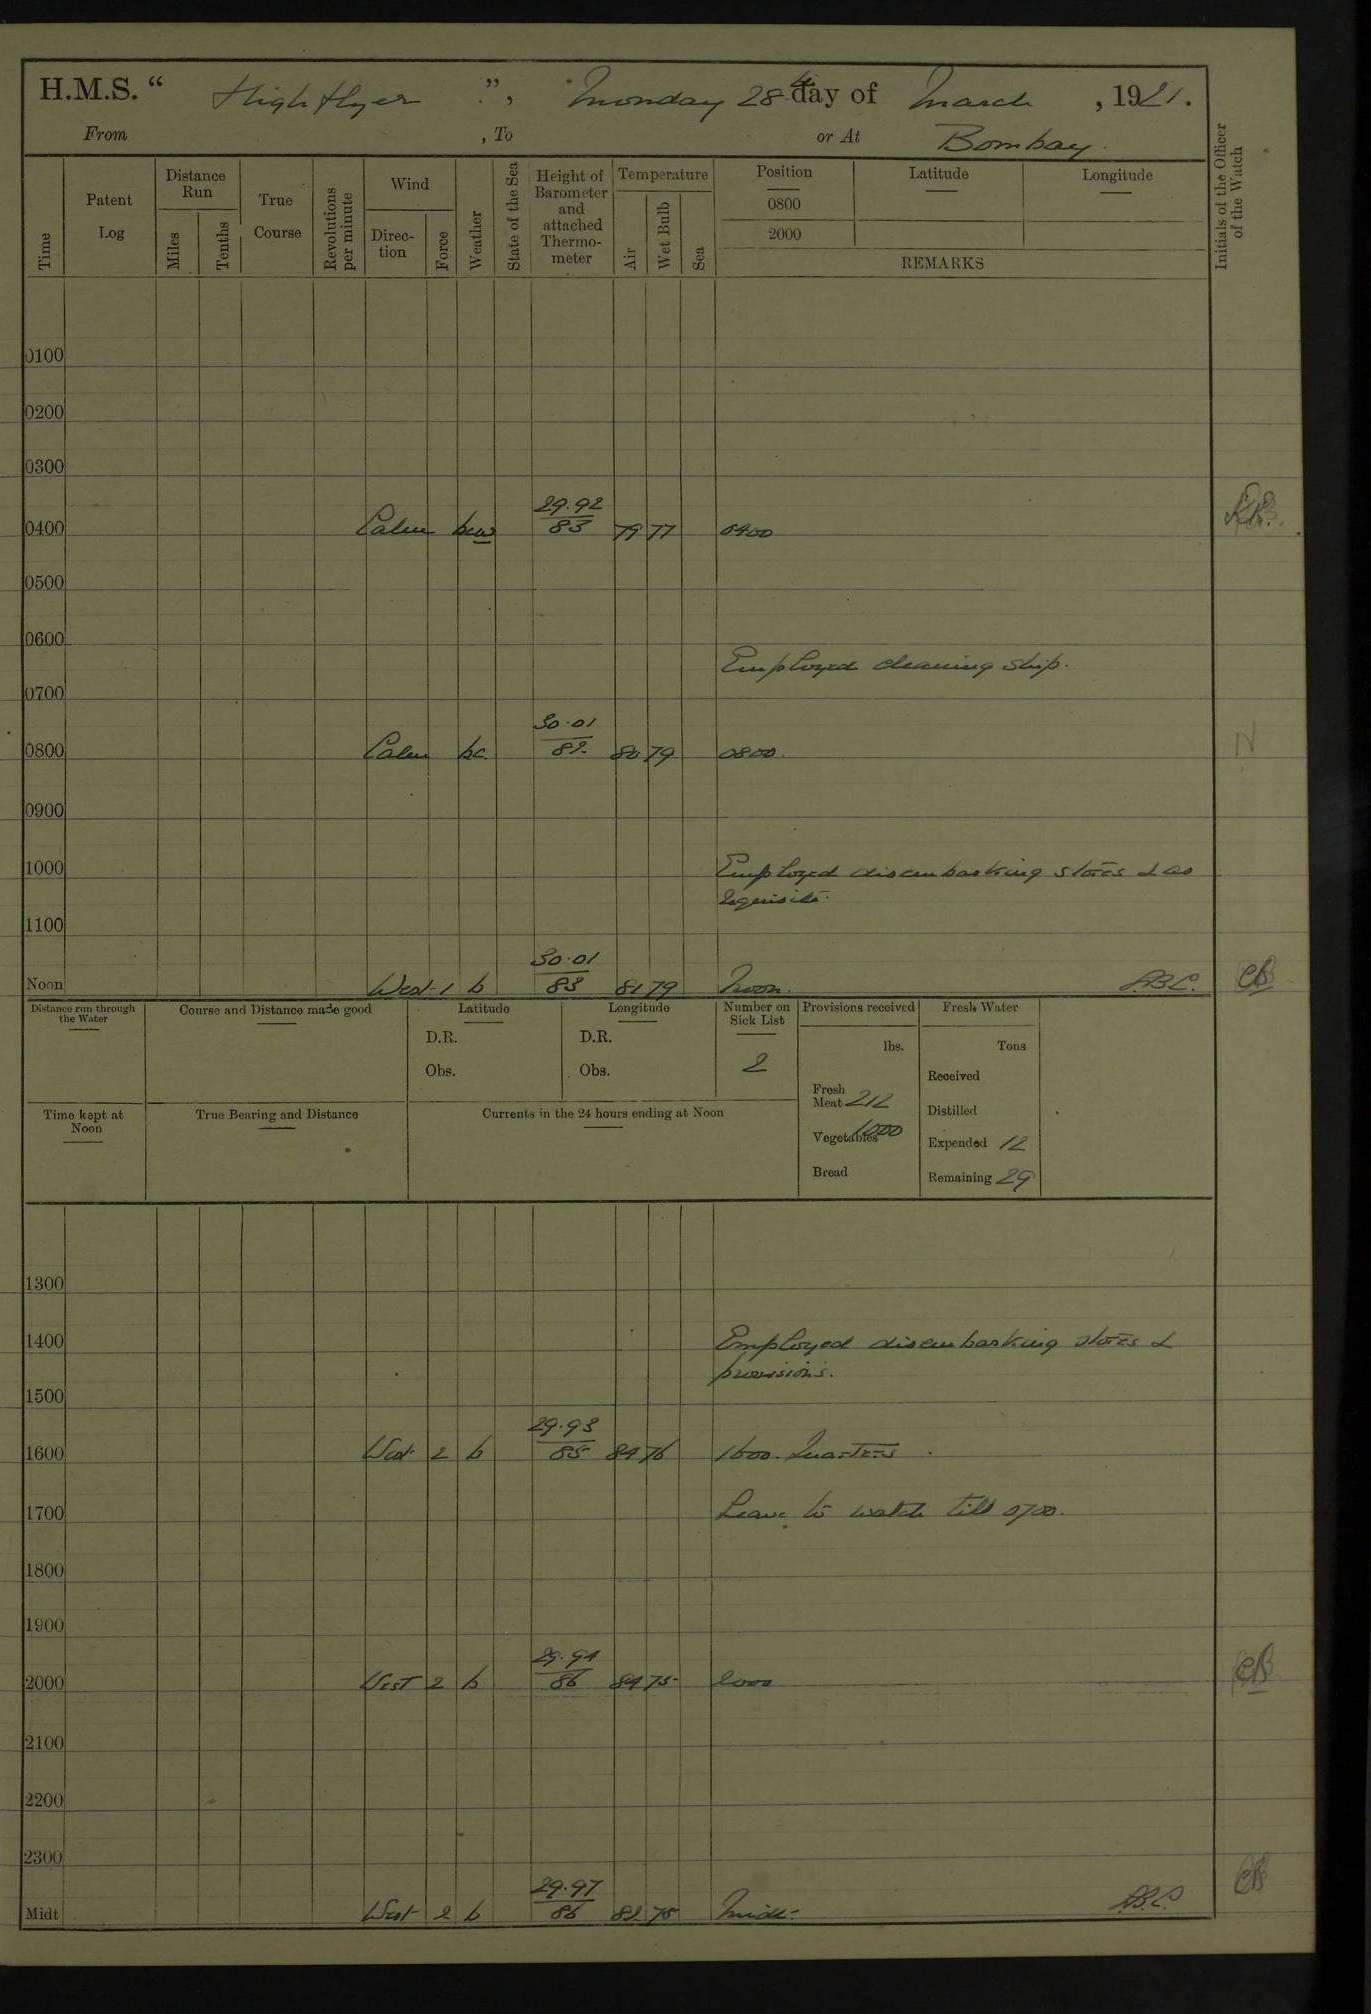 H.M.S. " Highflyer ", Monday 28th day of March, 1921.
From , To or At Bombay.
Time
Patent Log
Distance Run
Miles
Tenths
True Course
Revolutions per minute
Wind
Direc-tion
Force
Weather
State of the Sea
Height of Barometer and attached Thermo-meter
Temperature
Air
Wet Bulb
Sea
Position
0800
2000
Latitude
Longitude
REMARKS
Initials of the Officer of the Watch
0100
0200
0300
29.92
0400 Calm bcw 83 79 77 0400
0500
0600
Employed cleaning ship.
0700
30.01
0800 Calm bc 82 80 79 0800.
0900
1000 Employed disembarking stores & as
requisite.
1100
30.01
Noon West 1 b 83 81 79 Noon. CB
Distance run through the Water
Course and Distance made good
Latitude
D.R.
Obs.
Longitude
D.R.
Obs.
Number on Sick List
2
Provisions received
lbs.
Fresh Meat 212
Vegetables 1000
Bread
Fresh Water
Tons
Received
Distilled
Expended 12
Remaining 29
Time kept at Noon
True Bearing and Distance
Currents in the 24 hours ending at Noon
1300
1400 Employed disembarking stores &
provisions.
1500
29.93
1600 West 2 b 85 84 76 1600. Quarters.
1700 Leave to watch till 0700.
1800
1900
29.94
2000 West 2 b 86 84 75 2000 CB
2100
2200
2300
29.97 CB
Midt West 2 b 86 82 75 Midt.